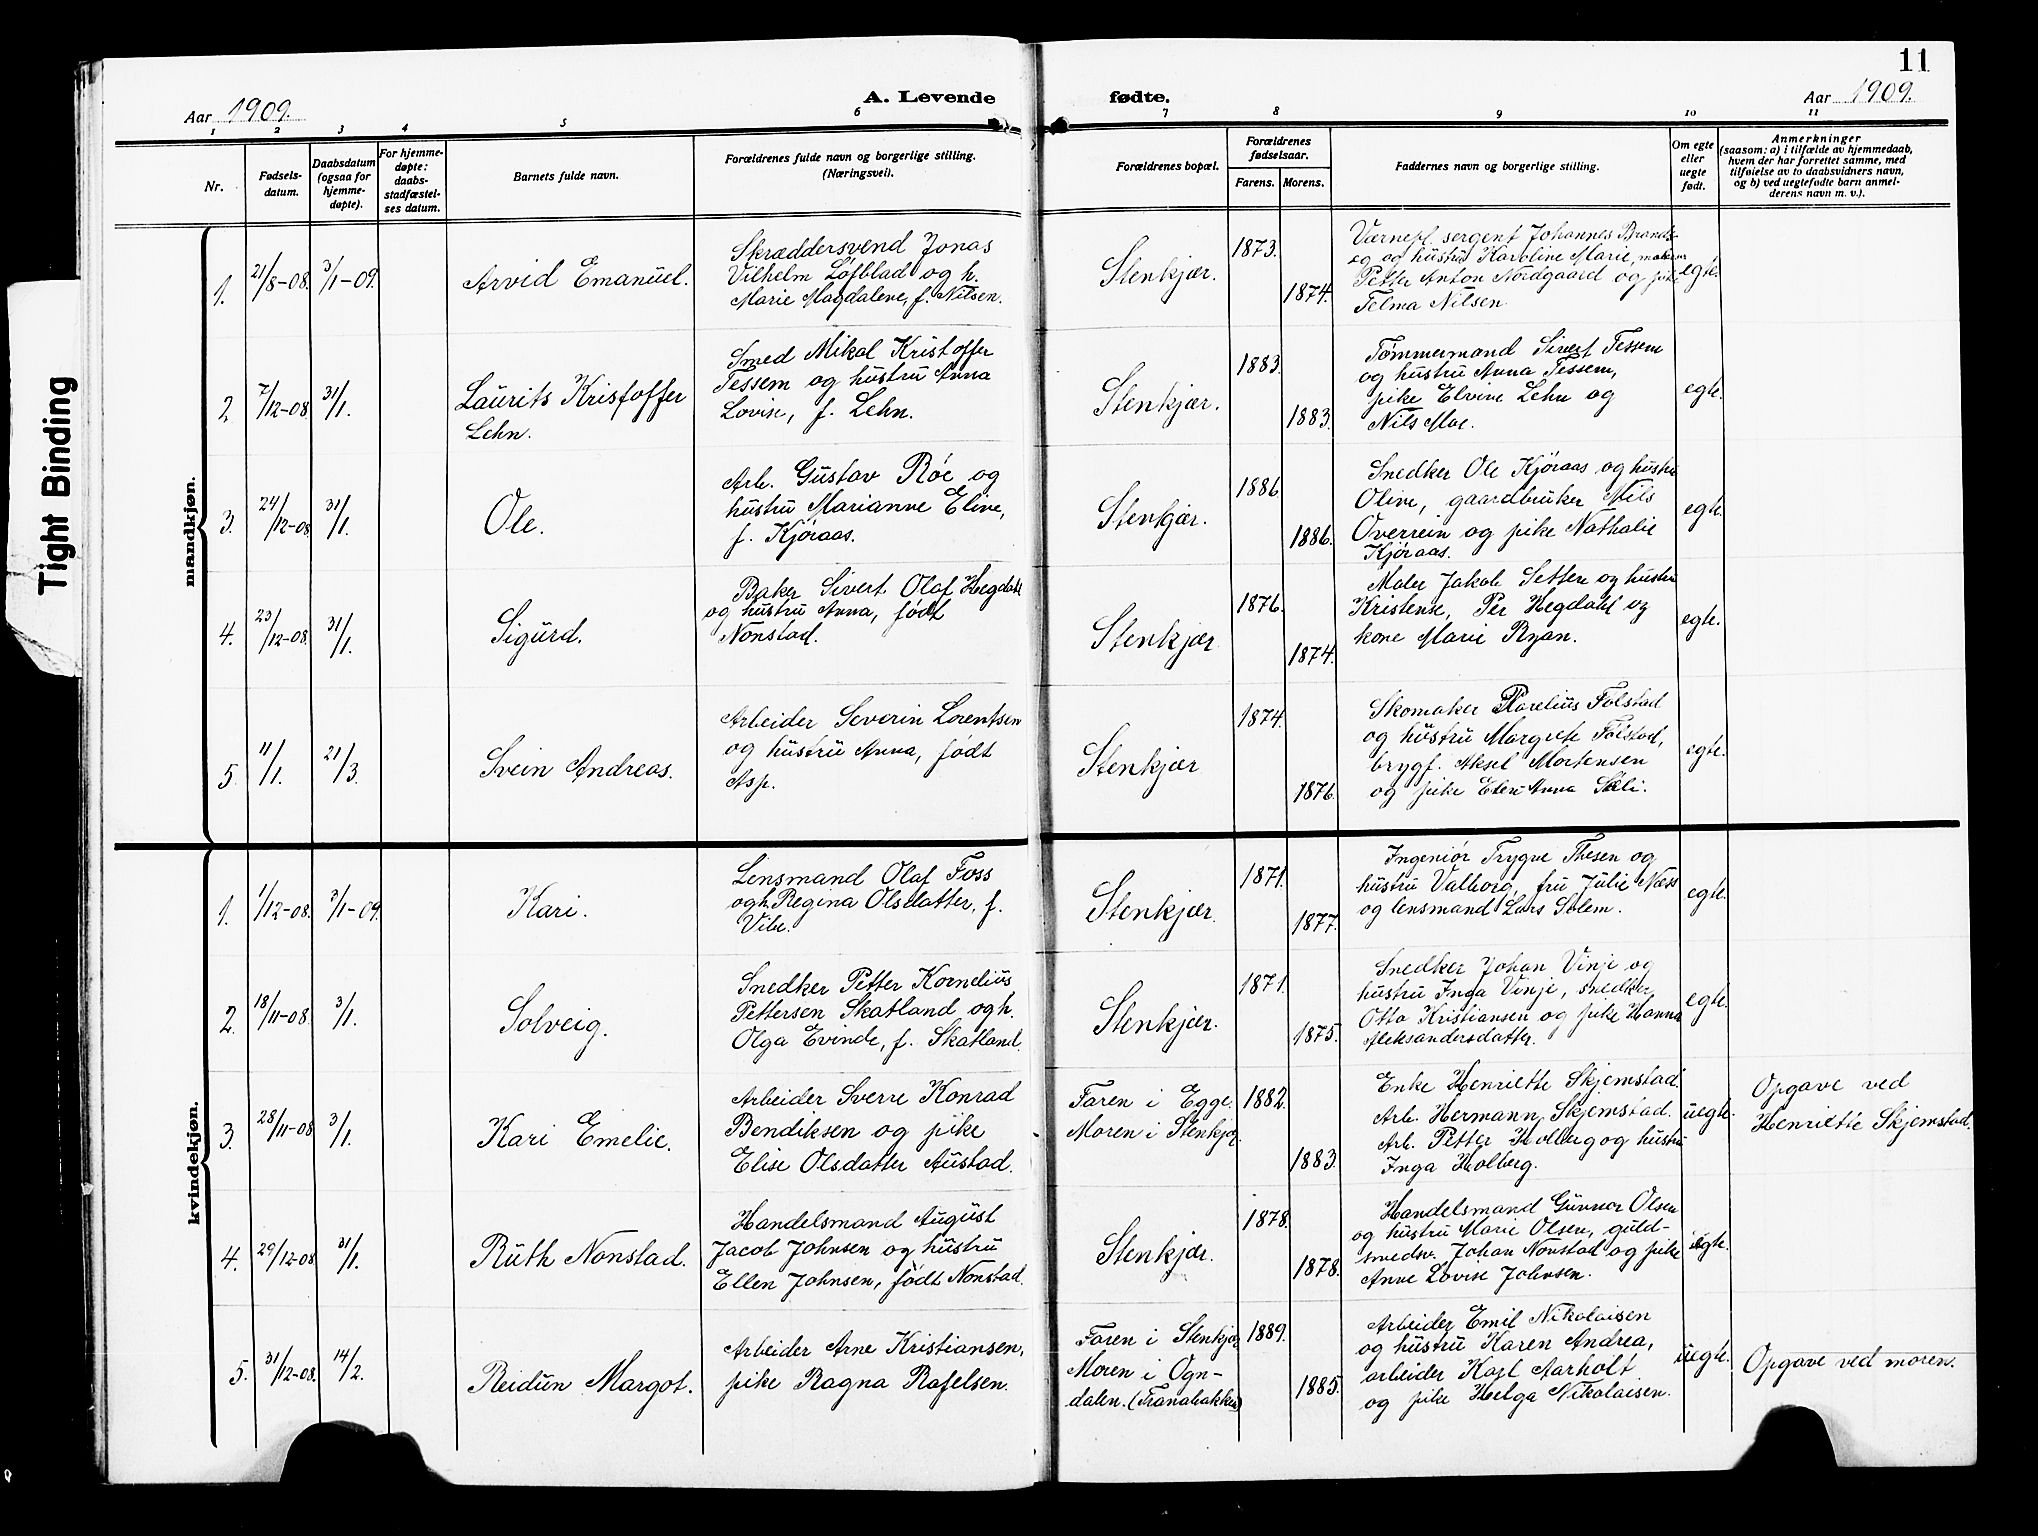 11
Aar 1909.
A. Levende
fødte.
Aar 1909.
1 2 3 4 5 6 7 8 9 10 11
Nr.
Fødsels-
datum.
Daabsdatum
(ogsaa for
hjemme-
døpte).
For hjemme-
døpte:
daabs-
stadfæstel-
ses datum.
Barnets fulde navn.
Forældrenes fulde navn og borgerlige stilling.
(Næringsvei).
Forældrenes bopæl.
Forældrenes
fødselsaar.
Farens. Morens.
Faddernes navn og borgerlige stilling.
Om egte
eller
uegte
født.
Anmerkninger
(saasom: a) i tilfælde av hjemmedaab,
hvem der har forrettet samme, med
tilføielse av to daabsvidners navn,
og b) ved uegtefødte barn anmel-
derens navn m. v.).
Tight Binding
mandkjøn.
1. 21/8-08. 3/1-09. Arvid Emanuel.
Skræddersvend Jonas
Vilhelm Løfblad og h.
Marie Magdalene, f. Nilsen.
Stenkjær. 1873. 1874.
Værnepl. sergent Johannes Brands-
eg og hustru Karoline Marie,
Petter Anton Nordgaard og pike
Telma Nilsen.
egte.
2. 7/12-08 31/1. Laurits Kristoffer
Lehn.
Smed Mikal Kristoffer
Tessem og hustru Anna
Lovise, f. Lehn.
Stenkjær. 1883. 1883.
Tømmermand Sivert Tessem
og hustru Anna Tessem,
pike Elvine Lehn og
Nils Moe.
egte.
3. 24/12-08 31/1. Ole.
Arb. Gustav Røe og
hustru Marianne Eline,
f. Kjøraas.
Stenkjær. 1886 1886.
Snedker Ole Kjøraas og hustru
Olive, gaardbruker Nils
Overrein og pike Nathalie
Kjøraas.
egte.
4. 23/12-08. 31/1. Sigurd.
Baker Sivert Olaf Hegdahl
og hustru Anna, født
Nonstad.
Stenkjær 1876. 1874.
Maler Jakob Setten og hustru
Kristense, Per Hegdahl og
kone Marie Ryan.
egte.
5. 11/1. 21/3. Svein Andreas.
Arbeider Severin Lorentsen
og hustru Anna, født
Asp.
Stenkjær 1874. 1876.
Skomaker Parelius Folstad
og hustru Margrete Folstad,
brygf. Aksel Mortensen
og pike Anna Sæli.
egte.
kvindekjøn.
1. 1/12-08. 3/1-09. Kari.
Lensmand Olaf Foss
og h. Regina Olsdatter, f.
Vibe.
Stenkjær. 1871. 1877.
Ingeniør Trygve Thesen og
hustru Valborg, fru Julie Næss
og lensmand Lars Solem.
egte.
2. 18/11-08. 3/1. Solveig.
Snedker Petter Kornelius
Pettersen Skatland og h.
Olga Evinde, f. Skatland.
Stenkjær. 1871. 1875.
Snedker Johan Vinje og
hustru Inga Vinje, snedker
Otto Kristiansen og pike Hanna
Aleksandersdatter.
egte.
3. 28/11-08 3/1. Kari Emelie.
Arbeider Sverre Konrad
Bendiksen og pike
Elise Olsdatter Austad.
Faren i Egge.
Moren i Stenkjær.
1882. 1883.
Enke Henriette Skjemstad.
Arb. Hermann Skjemstad.
Arb. Petter Holberg og hustru
Inga Holberg.
uegte.
Opgave ved
Henriette Skjemstad.
4. 29/12-08 31/1. Ruth Nonstad.
Handelsmand August
Jacob Johnsen og hustru
Ellen Johnsen, født Nonstad.
Stenkjær. 1878. 1878.
Handelsmand Gunnar Olsen
og hustru Marie Olsen, guld-
smedsv. Johan Nonstad og pike
Anne Lovise Johnsen.
egte.
5. 31/12-08. 14/2. Reidun Margot.
Arbeider Arne Kristiansen,
pike Ragna Rafelsen.
Faren i Stenkjær
Moren i Ogn-
dalen. (Tranabakken)
1889. 1885.
Arbeider Emil Nikolaisen
og hustru Karen Andrea,
arbeider Karl Aarholt
og pike Helga Nikolaisen.
uegte.
Opgave ved moren.